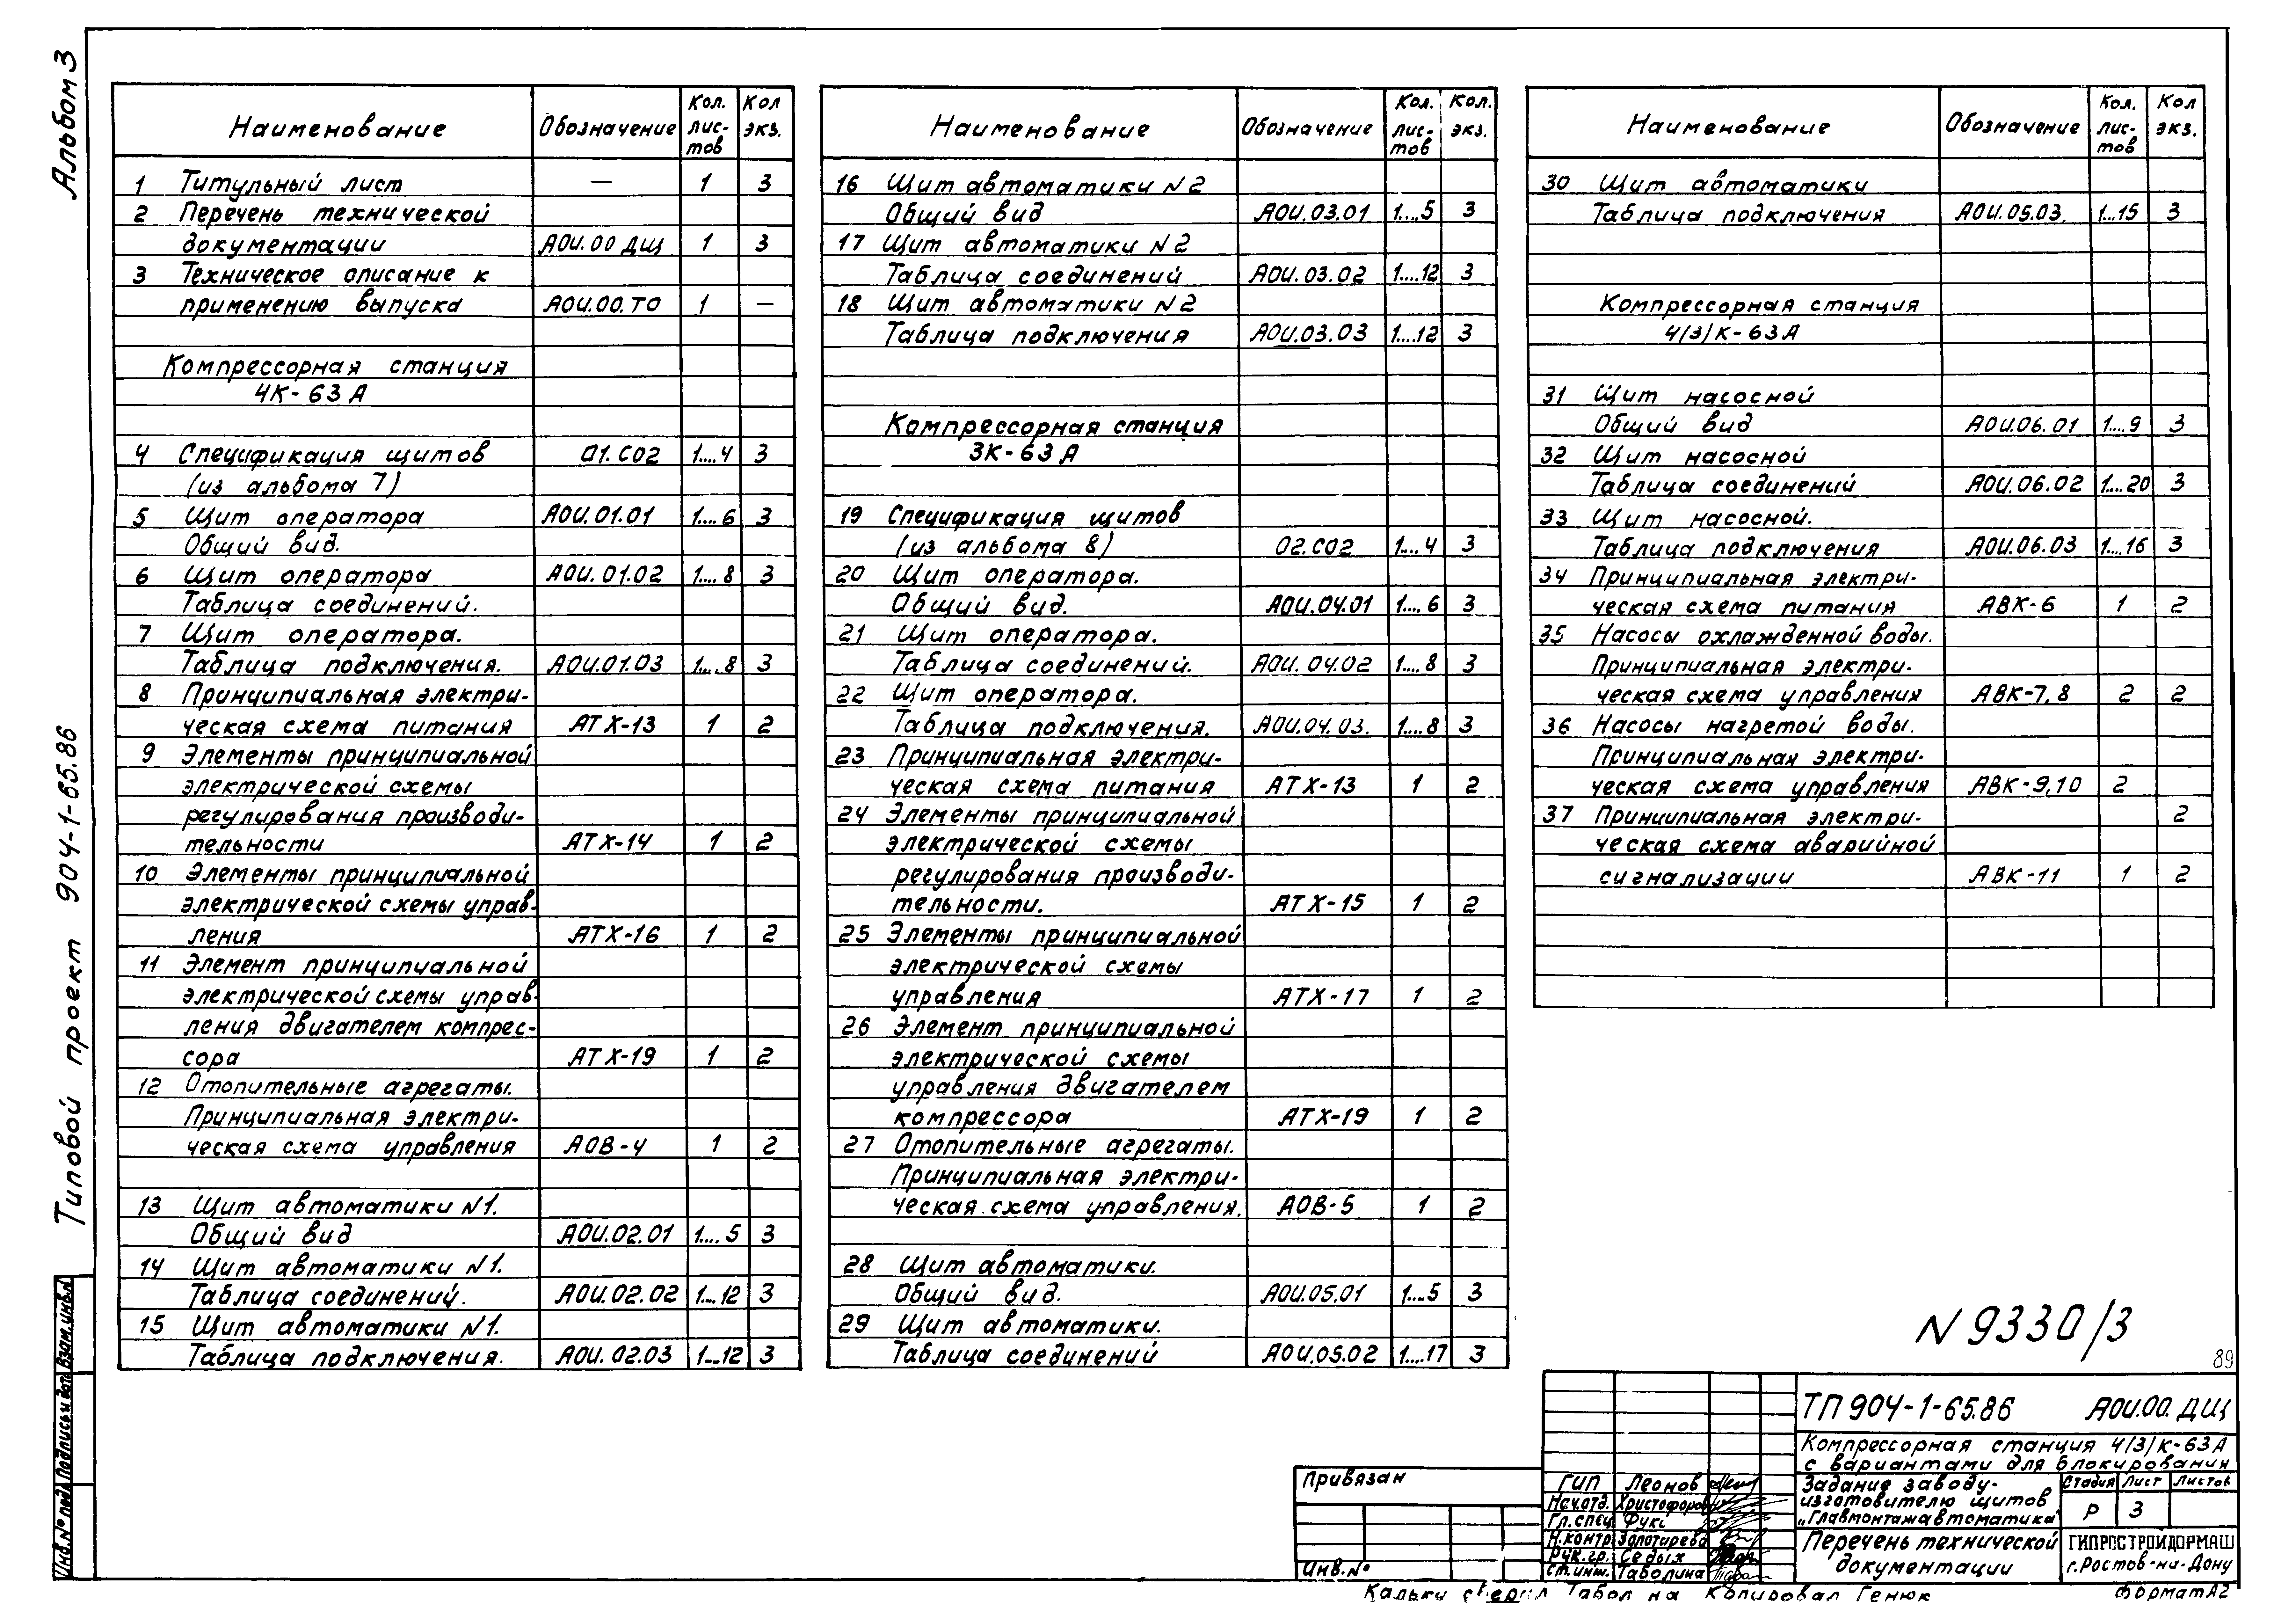 Альбом 3
Типовой проект 904-1-65.86
Наименование Обозначение Кол. лис- тов Кол экз.
1 Титульный лист — 1 3
2 Перечень технической
документации АОИ.00 ДЩ 1 3
3 Техническое описание к
применению выпуска АОИ.00.ТО 1 —
Компрессорная станция
4К-63А
4 Спецификация щитов 01.СО2 1....4 3
(из альбома 7)
5 Щит оператора АОИ.01.01 1....6 3
Общий вид.
6 Щит оператора АОИ.01.02 1....8 3
Таблица соединений.
7 Щит оператора.
Таблица подключения. АОИ.01.03 1....8 3
8 Принципиальная электри-
ческая схема питания АТХ-13 1 2
9 Элементы принципиальной
электрической схемы
регулирования производи-
тельности АТХ-14 1 2
10 Элементы принципиальной
электрической схемы управ-
ления АТХ-16 1 2
11 Элемент принципиальной
электрической схемы управ-
ления двигателем компрес-
сора АТХ-19 1 2
12 Отопительные агрегаты.
Принципиальная электри-
ческая схема управления АОВ-4 1 2
13 Щит автоматики N1.
Общий вид АОИ.02.01 1....5 3
14 Щит автоматики N1.
Таблица соединений. АОИ.02.02 1...12 3
15 Щит автоматики N1.
Таблица подключения. АОИ.02.03 1...12 3
Наименование Обозначение Кол. лис- тов Кол. экз.
16 Щит автоматики N2
Общий вид АОИ.03.01 1....5 3
17 Щит автоматики N2
Таблица соединений АОИ.03.02 1....12 3
18 Щит автоматики N2
Таблица подключения АОИ.03.03 1....12 3
Компрессорная станция
3К-63А
19 Спецификация щитов
(из альбома 8) 02.СО2 1....4 3
20 Щит оператора.
Общий вид. АОИ.04.01 1....6 3
21 Щит оператора.
Таблица соединений. АОИ.04.02 1....8 3
22 Щит оператора.
Таблица подключения. АОИ.04.03. 1....8 3
23 Принципиальная электри-
ческая схема питания АТХ-13 1 2
24 Элементы принципиальной
электрической схемы
регулирования производи-
тельности. АТХ-15 1 2
25 Элементы принципиальной
электрической схемы
управления АТХ-17 1 2
26 Элемент принципиальной
электрической схемы
управления двигателем
компрессора АТХ-19 1 2
27 Отопительные агрегаты.
Принципиальная электри-
ческая схема управления. АОВ-5 1 2
28 Щит автоматики.
Общий вид. АОИ.05.01 1....5 3
29 Щит автоматики.
Таблица соединений АОИ.05.02 1....17 3
Наименование Обозначение Кол. лис- тов Кол экз.
30 Щит автоматики
Таблица подключения АОИ.05.03. 1...15 3
Компрессорная станция
4/3/К-63А
31 Щит насосной
Общий вид АОИ.06.01 1....9 3
32 Щит насосной
Таблица соединений АОИ.06.02 1....20 3
33 Щит насосной.
Таблица подключения АОИ.06.03 1....16 3
34 Принципиальная электри-
ческая схема питания АВК-6 1 2
35 Насосы охлажденной воды.
Принципиальная электри-
ческая схема управления АВК-7,8 2 2
36 Насосы нагретой воды.
Принципиальная электри-
ческая схема управления АВК-9,10 2
37 Принципиальная электри- 2
ческая схема аварийной
сигнализации АВК-11 1 2
N 9330/3
89
ТП 904-1-65.86 АОИ.00.ДЩ
Компрессорная станция 4/3/К-63А
с вариантами для блокирования
Задание заводу-
изготовителю щитов
„Главмонтажавтоматика"
Стадия Лист Листов
Р 3
Перечень технической
документации
ГИПРОСТРОЙДОРМАШ
г.Ростов-на-Дону
Привязан
Инв.№
ГИП Леонов
Нач.отд. Христофоров
Гл.спец. Фукс
Н.контр. Золотарева
Рук.гр. Седых
Ст.инж. Таболина
Инв.№ подл. Подпись и дата Взам.инв.N
Копировал Генюк
Формат А2